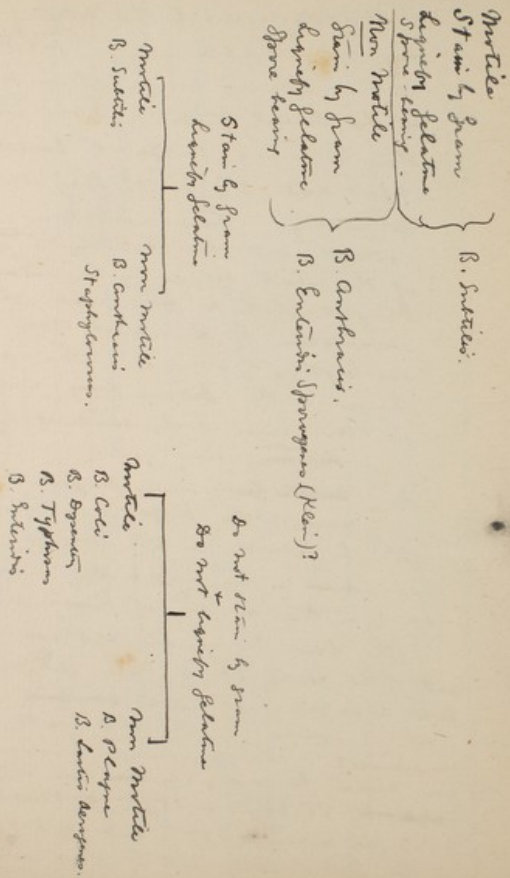 Motile
Stain by Gram
Liquefy Gelatine
Spore bearing.
B. Subtilis.
Non Motile
Stain by Gram
Liquefy Gelatine
Spore bearing
B. Anthracis.
B. Enteridis Sporogenes (Klein)?
Stain by Gram
Liquefy Gelatine
Motile
B. Subtilis
Non Motile
B. Anthracis
Staphylococcus.
Do not stain by Gram
Do not liquefy Gelatine
Motile
B. Coli
B. Dysentery
B. Typhosus
B. Enteridis
Non Motile
B. Plague
B. Lactis Aerogenes.